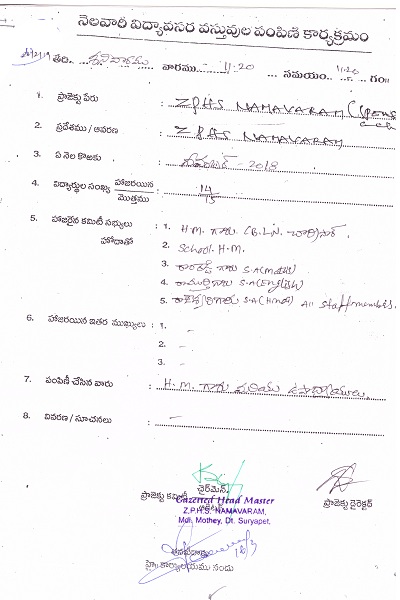 నెలవారీ విద్యావసర వస్తువుల పంపిణీ కార్యక్రమం
తేది. శనివారము వారము 11-20 సమయం 11-20 గం॥
1. ప్రాజెక్టు పేరు : Z.P.H.S NAMAVARAM
2. ప్రదేశము / ఆవరణ : Z.P.H.S NAMAVARAM
3. ఏ నెల కొఱకు : - 2018
4. విద్యార్థుల సంఖ్య హాజరయిన / మొత్తము : 14 / 15
5. హాజరైన కమిటీ సభ్యులు : 1. H.M. గారు (B.L.N. చారి) సార్.
హోదాతో 2. School. H.M.
3. గారు S.A (Maths)
4. రామ్మూర్తి గారు S.A (English)
5. గారు S.A (Hindi) All Staff members.
6. హాజరయిన ఇతర ముఖ్యులు : 1. -
2. -
3. -
7. పంపిణీ చేసిన వారు : H.M. గారు మరియు ఉపాధ్యాయులు.
8. వివరణ / సూచనలు : -
ప్రాజెక్టు కమిటీ చైర్మెన్, ప్రాజెక్టు డైరెక్టర్
Gazetted Head Master
Z.P.H.S. NAMAVARAM,
Mdl. Mothey, Dt. Suryapet.
హై కార్యాలయము నందు